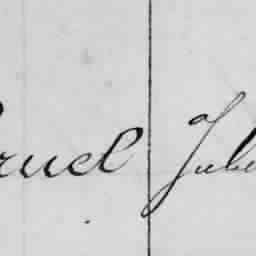 ruel Jule